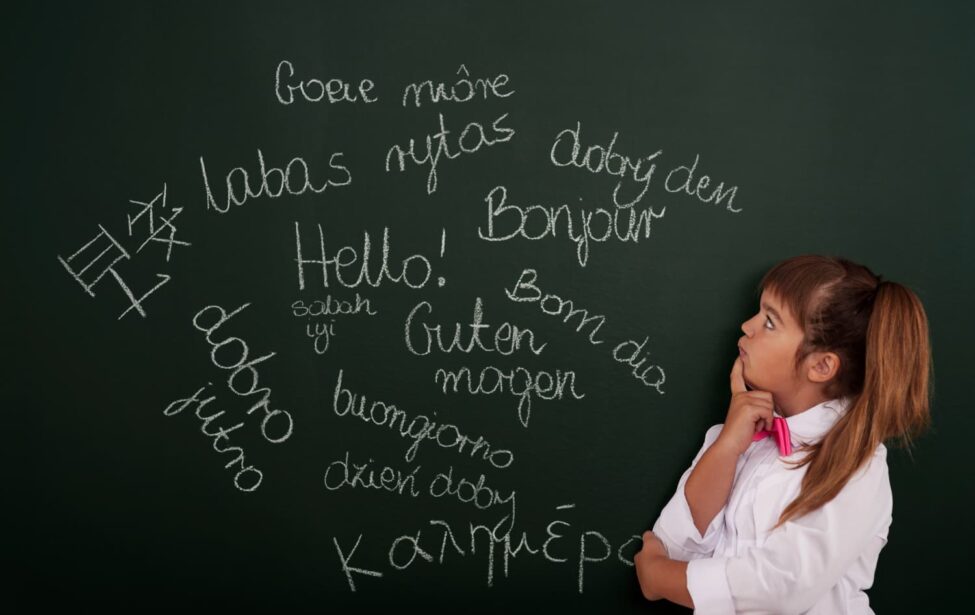 Goeie môre
labas rytas
dobrý den
Bonjour
早安
Hello!
sabah
iyi
Bom dia
Guten
morgen
dobro
jutro
buongiorno
dzień dobry
Καλημέρα